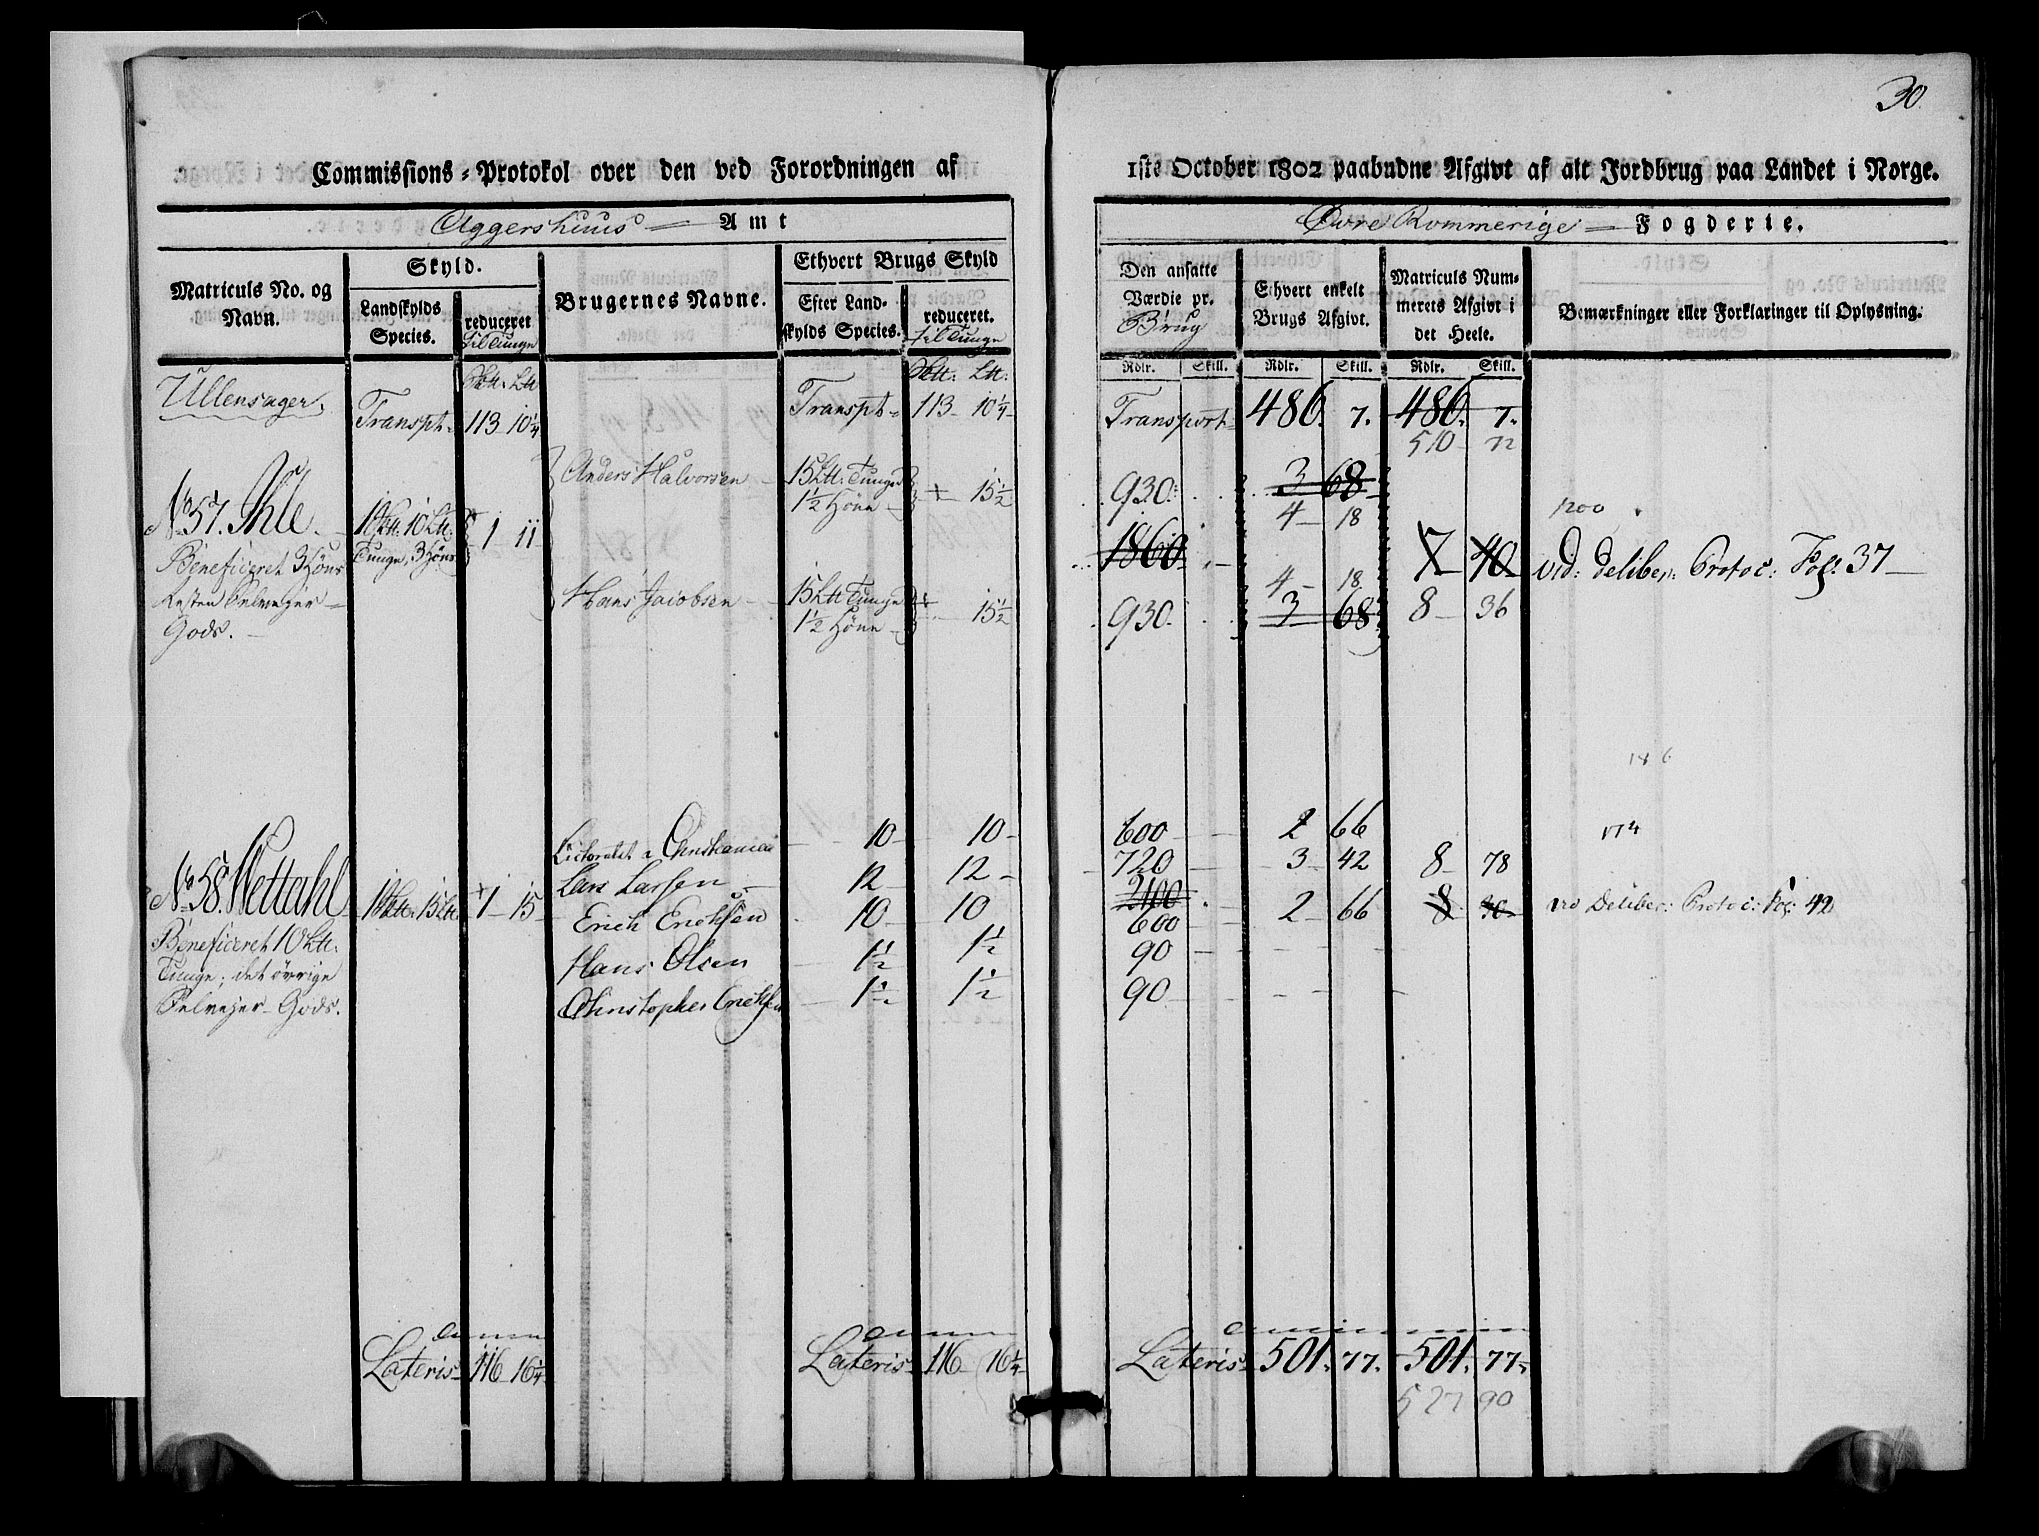 30.
Commissions-Protokol over den ved Forordningen af 1ste October 1802 paabudne Afgivt af alt Jordbrug paa Landet i Norge.
Aggershuus Amt
Øvre Rommerige Fogderie.
Matriculs No. og Navn.
Skyld.
Landskylds Species.
reduceret til Tunge
Brugernes Navne.
Ethvert Brugs Skyld
Efter Landskylds Species.
reduceret. til Tunge
Den ansatte Værdie pr. Brug
Ethvert enkelt Brugs Afgivt.
Matriculs Nummerets Afgivt i det Heele.
Bemærkninger eller Forklaringer til Oplysning.
Rdlr. Skill. Rdlr. Skill. Rdlr. Skill.
Ullensager,
Transpt. 113 10 1/4
Transpt. 113 10 1/4
Transport 486. 7. 486. 7.
510 72
Anders Halvorsen 15 Ltt: Tunge 15 1/2
1 1/2 Høne
930. 3 68
4 18
1200
No 57. Ihle 10 Ltt: 1 11
Tunge, 3 Høns
1860 7 40 vid: Deliber: Protoc: Fol: 37
Beneficeret 3 Høns
Resten Selvejer
Gods.
Hans Jacobsen 15 Ltt Tunge 15 1/2
1 1/2 Høne
4 18
930. 3 68 8 36
186
No 58. Nettahl 15 Ltt 1 15
Beneficeret 10 Ltt:
Tunge; det övrige
Selvejer Gods.
Lectoratet i Christiania 10 10 600 2 66 174
Lars Larsen 12 12 720 3 42 8 78
2100 8 30 vid Deliber: Protoc: Fol: 42
Erich Erichsen 10 10 600 2 66
Hans Olsen 1 1/2 1 1/2 90
Christopher Erichsen 1 1/2 1 1/2 90
Lateris 116 16 1/4
Lateris 116 16 1/4
Lateris 501. 77. 501. 77.
527 90